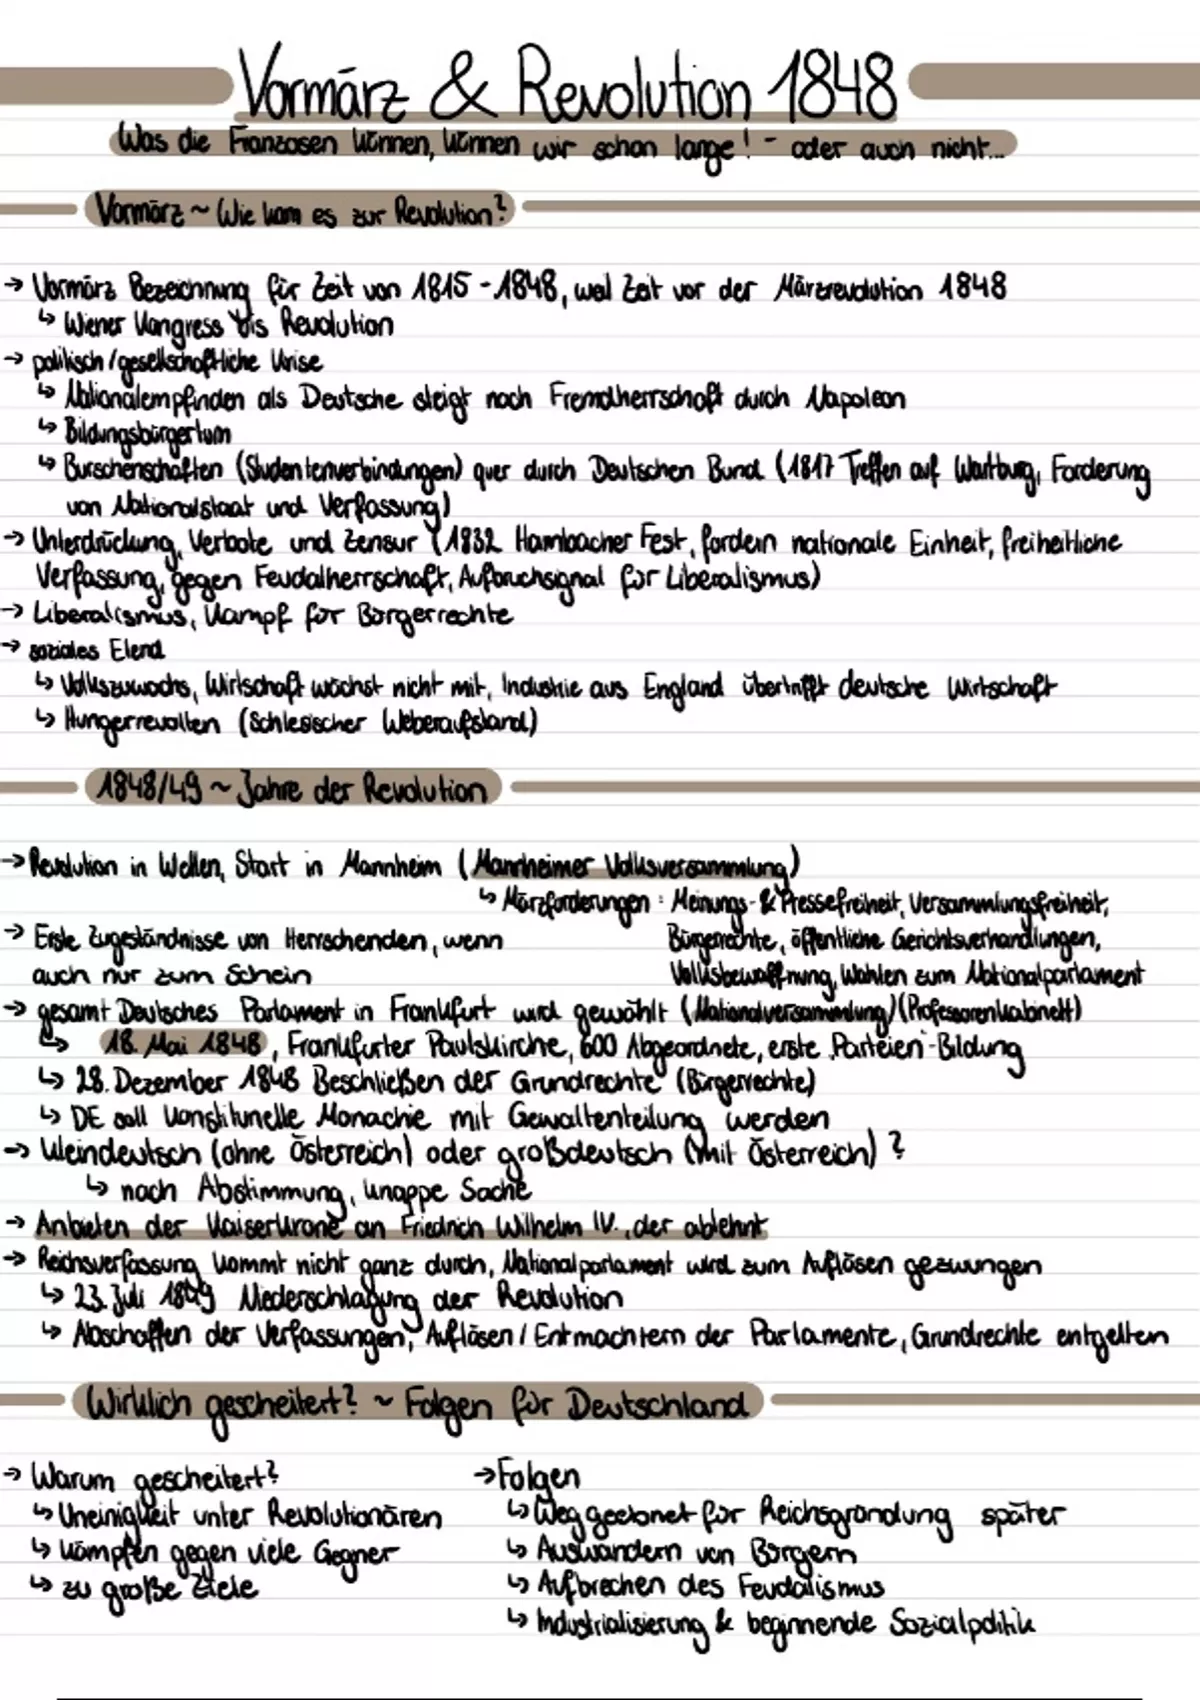 Vormärz & Revolution 1848
Was die Franzosen können, können wir schon lange! - oder auch nicht...
Vormärz ~ Wie kam es zur Revolution?
→ Vormärz Bezeichnung für Zeit von 1815 - 1848, weil Zeit vor der Märzrevolution 1848
↳ Wiener Kongress bis Revolution
→ politisch/gesellschaftliche Krise
↳ Nationalempfinden als Deutsche steigt nach Fremdherrschaft durch Napoleon
↳ Bildungsbürgertum
↳ Burschenschaften (Studentenverbindungen) quer durch Deutschen Bund (1817 Treffen auf Wartburg, Forderung
von Nationalstaat und Verfassung)
→ Unterdrückung, Verbote und Zensur (1832 Hambacher Fest, fordern nationale Einheit, freiheitliche
Verfassung, gegen Feudalherrschaft, Aufbruchsignal für Liberalismus)
→ Liberalismus, Kampf für Bürgerrechte
→ soziales Elend
↳ Volkszuwachs, Wirtschaft wächst nicht mit, Industrie aus England übertrifft deutsche Wirtschaft
↳ Hungerrevolten (Schlesischer Weberaufstand)
1848/49 ~ Jahre der Revolution
→ Revolution in Wellen, Start in Mannheim (Mannheimer Volksversammlung)
↳ Märzforderungen: Meinungs- & Pressefreiheit, Versammlungsfreiheit,
Bürgerrechte, öffentliche Gerichtsverhandlungen,
Volksbewaffnung, Wahlen zum Nationalparlament
→ Erste Zugeständnisse von Herrschenden, wenn
auch nur zum Schein
→ gesamt Deutsches Parlament in Frankfurt wird gewählt (Nationalversammlung) (Professorenkabinett)
↳ 18. Mai 1848, Frankfurter Paulskirche, 600 Abgeordnete, erste Parteien-Bildung
↳ 28. Dezember 1848 Beschließen der Grundrechte (Bürgerrechte)
↳ DE soll konstitunelle Monachie mit Gewaltenteilung werden
→ Kleindeutsch (ohne Österreich) oder großdeutsch (mit Österreich)?
↳ nach Abstimmung, knappe Sache
→ Anbieten der Kaiserkrone an Friedrich Wilhelm IV., der ablehnt
→ Reichsverfassung kommt nicht ganz durch, Nationalparlament wird zum Auflösen gezwungen
↳ 23. Juli 1849 Niederschlagung der Revolution
↳ Abschaffen der Verfassungen, Auflösen/Entmachtern der Parlamente, Grundrechte entgelten
Wirklich gescheitert? ~ Folgen für Deutschland
→ Warum gescheitert?
↳ Uneinigkeit unter Revolutionären
↳ kämpfen gegen viele Gegner
↳ zu große Ziele
→ Folgen
↳ Weg geebnet für Reichsgründung später
↳ Auswandern von Bürgern
↳ Aufbrechen des Feudalismus
↳ Industrialisierung & beginnende Sozialpolitik